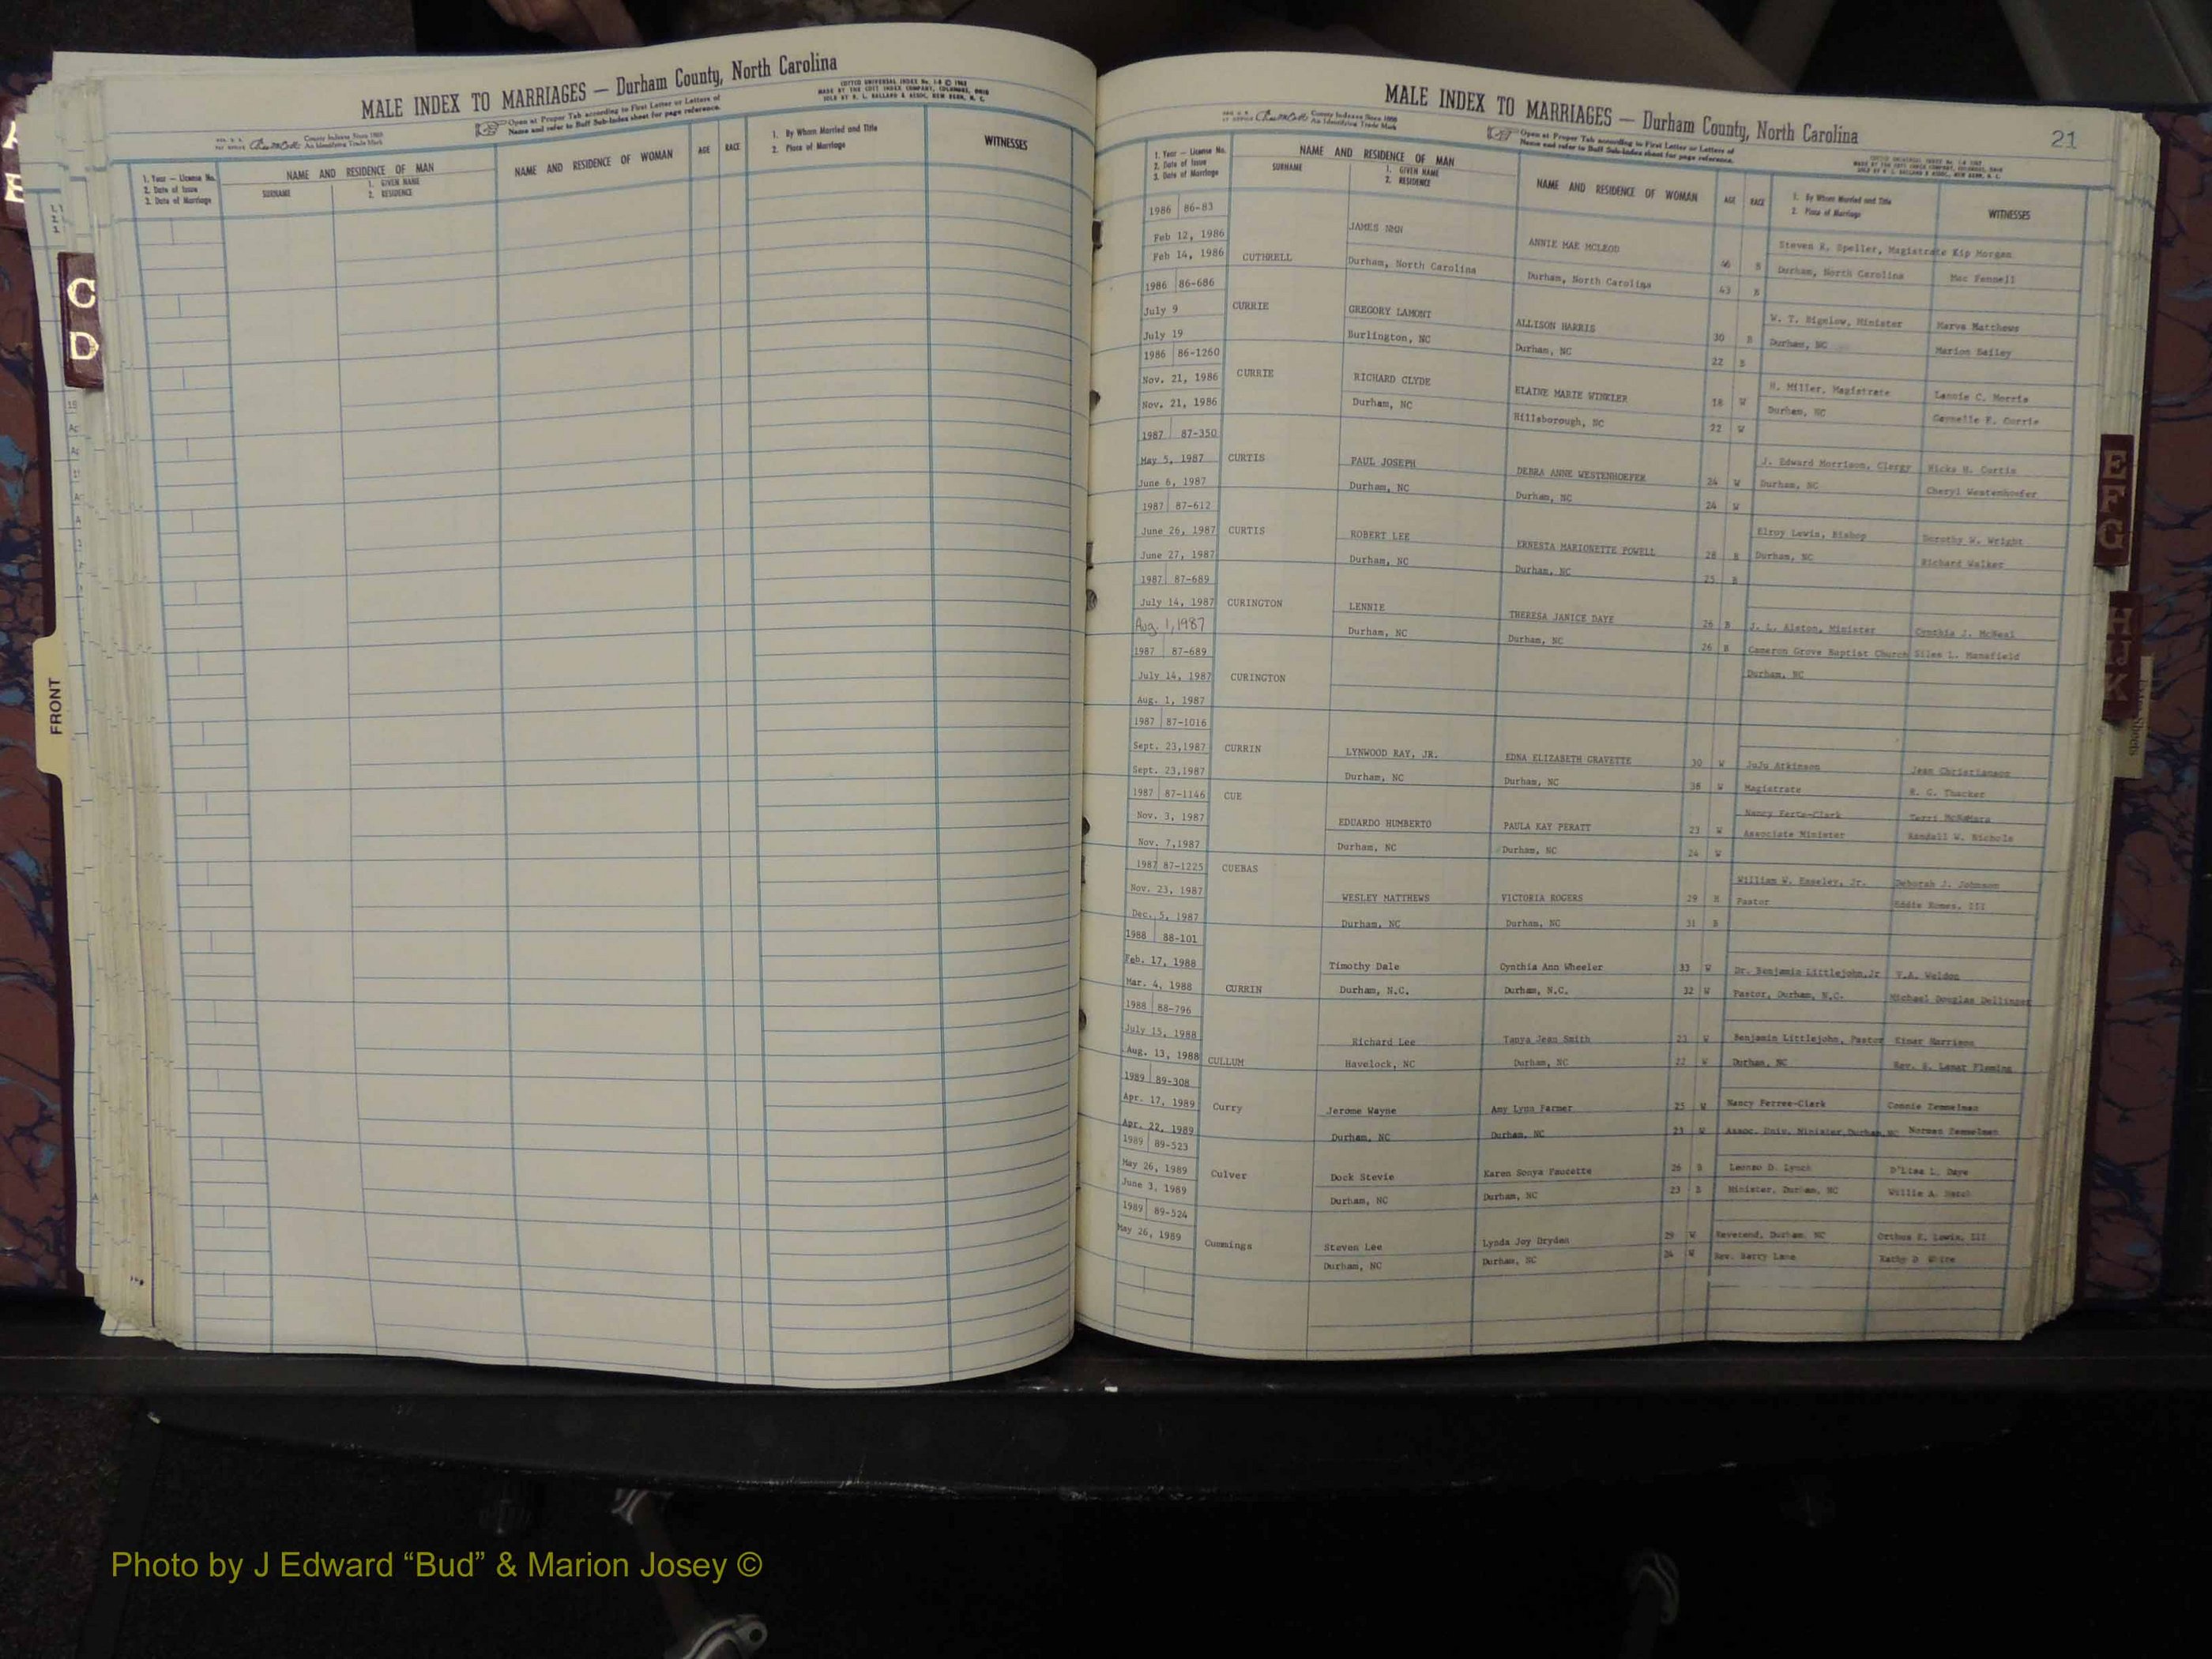 MALE INDEX TO MARRIAGES — Durham County, North Carolina
COTTCO UNIVERSAL INDEX
MADE BY THE COTT INDEX COMPANY, COLUMBUS, OHIO
County Indexes Since 1888
An Identifying Trade Mark
Open at Proper Tab according to First Letter or Letters of
Name and refer to Buff Sub-Index sheet for page reference.
1. Year — License No.
2. Date of Issue
3. Date of Marriage
NAME AND RESIDENCE OF MAN
SURNAME
1. GIVEN NAME
2. RESIDENCE
NAME AND RESIDENCE OF WOMAN
AGE
RACE
1. By Whom Married and Title
2. Place of Marriage
WITNESSES
C
D
FRONT
MALE INDEX TO MARRIAGES — Durham County, North Carolina
21
County Indexes Since 1888
An Identifying Trade Mark
Open at Proper Tab according to First Letter or Letters of
Name and refer to Buff Sub-Index sheet for page reference.
1. Year — License No.
2. Date of Issue
3. Date of Marriage
NAME AND RESIDENCE OF MAN
SURNAME
1. GIVEN NAME
2. RESIDENCE
NAME AND RESIDENCE OF WOMAN
AGE
RACE
1. By Whom Married and Title
2. Place of Marriage
WITNESSES
1986 86-83
JAMES NMN ANNIE MAE MCLEOD Steven R. Speller, Magistrate Kip Morgan
Feb 12, 1986
Feb 14, 1986 CUTHRELL Durham, North Carolina Durham, North Carolina 46 B Durham, North Carolina Mac Fennell
43 B
1986 86-686
July 9 CURRIE GREGORY LAMONT ALLISON HARRIS 30 B W. T. Bigelow, Minister Marva Matthews
July 19 Burlington, NC Durham, NC 22 B Durham, NC Marion Bailey
1986 86-1260
Nov. 21, 1986 CURRIE RICHARD CLYDE ELAINE MARIE WINKLER 18 W H. Miller, Magistrate Lannie C. Morris
Nov. 21, 1986 Durham, NC Hillsborough, NC 22 W Durham, NC Currie
1987 87-350
May 5, 1987 CURTIS PAUL JOSEPH DEBRA ANNE WESTENHOEFER 24 W J. Edward Morrison, Clergy Hicks H. Curtis
June 6, 1987 Durham, NC Durham, NC 24 W Durham, NC Cheryl Westenhoefer
1987 87-612
June 26, 1987 CURTIS ROBERT LEE ERNESTA MARIONETTE POWELL 28 B Elroy Lewis, Bishop Dorothy W. Wright
June 27, 1987 Durham, NC Durham, NC 25 B Durham, NC Richard Walker
1987 87-689
July 14, 1987 CURINGTON LENNIE THERESA JANICE DAYE 26 B J. L. Alston, Minister Cynthia J. McNeal
Aug. 1, 1987 Durham, NC Durham, NC 26 B Cameron Grove Baptist Church Silas L. Mansfield
1987 87-689 Durham, NC
July 14, 1987 CURINGTON
Aug. 1, 1987
1987 87-1016
Sept. 23,1987 CURRIN LYNWOOD RAY, JR. EDNA ELIZABETH GRAVETTE 30 W JuJu Atkinson Jean Christianson
Sept. 23,1987 Durham, NC Durham, NC 38 W Magistrate H. C. Thacker
1987 87-1146 CUE
Nov. 3, 1987 EDUARDO HUMBERTO PAULA KAY PERATT 23 W Terri McNamara
Nov. 7,1987 Durham, NC Durham, NC 24 W Associate Minister Randall W. Nichols
1987 87-1225 CUEBAS
Nov. 23, 1987 WESLEY MATTHEWS VICTORIA ROGERS 29 B William W. Easley, Jr. Deborah J. Johnson
Dec. 5, 1987 Durham, NC Durham, NC 31 B Pastor
1988 88-101
Feb. 17, 1988 Timothy Dale Cynthia Ann Wheeler 33 W Dr. Benjamin Littlejohn,Jr V.A. Weldon
Mar. 4, 1988 CURRIN Durham, N.C. Durham, N.C. 32 W Pastor, Durham, N.C. Michael Douglas Dellinger
1988 88-796
July 15, 1988 Richard Lee Tanya Jean Smith 23 W Benjamin Littlejohn, Pastor Harrison
Aug. 13, 1988 CULLUM Havelock, NC Durham, NC 22 W Durham, NC Rev. S. Lamar Fleming
1989 89-308
Apr. 17, 1989 Curry Jerome Wayne Amy Lynn Farmer 25 W Nancy Ferree-Clark Connie
Apr. 22, 1989 Durham, NC Durham, NC 23 W Assoc. Univ. Minister,Durham,NC Norman
1989 89-523
May 26, 1989 Culver Dock Stevie Karen Sonya Faucette 26 B Leonzo D. Lynch D'Lisa L. Daye
June 3, 1989 Durham, NC Durham, NC 23 B Minister, Durham, NC Willie A.
1989 89-524
May 26, 1989 Cummings Steven Lee Lynda Joy Dryden 29 W Reverend, Durham, NC Lewis, III
Durham, NC Durham, NC 24 W Rev. Barry Lane Kathy D
E
F
G
H
IJ
K
Photo by J Edward “Bud” & Marion Josey ©